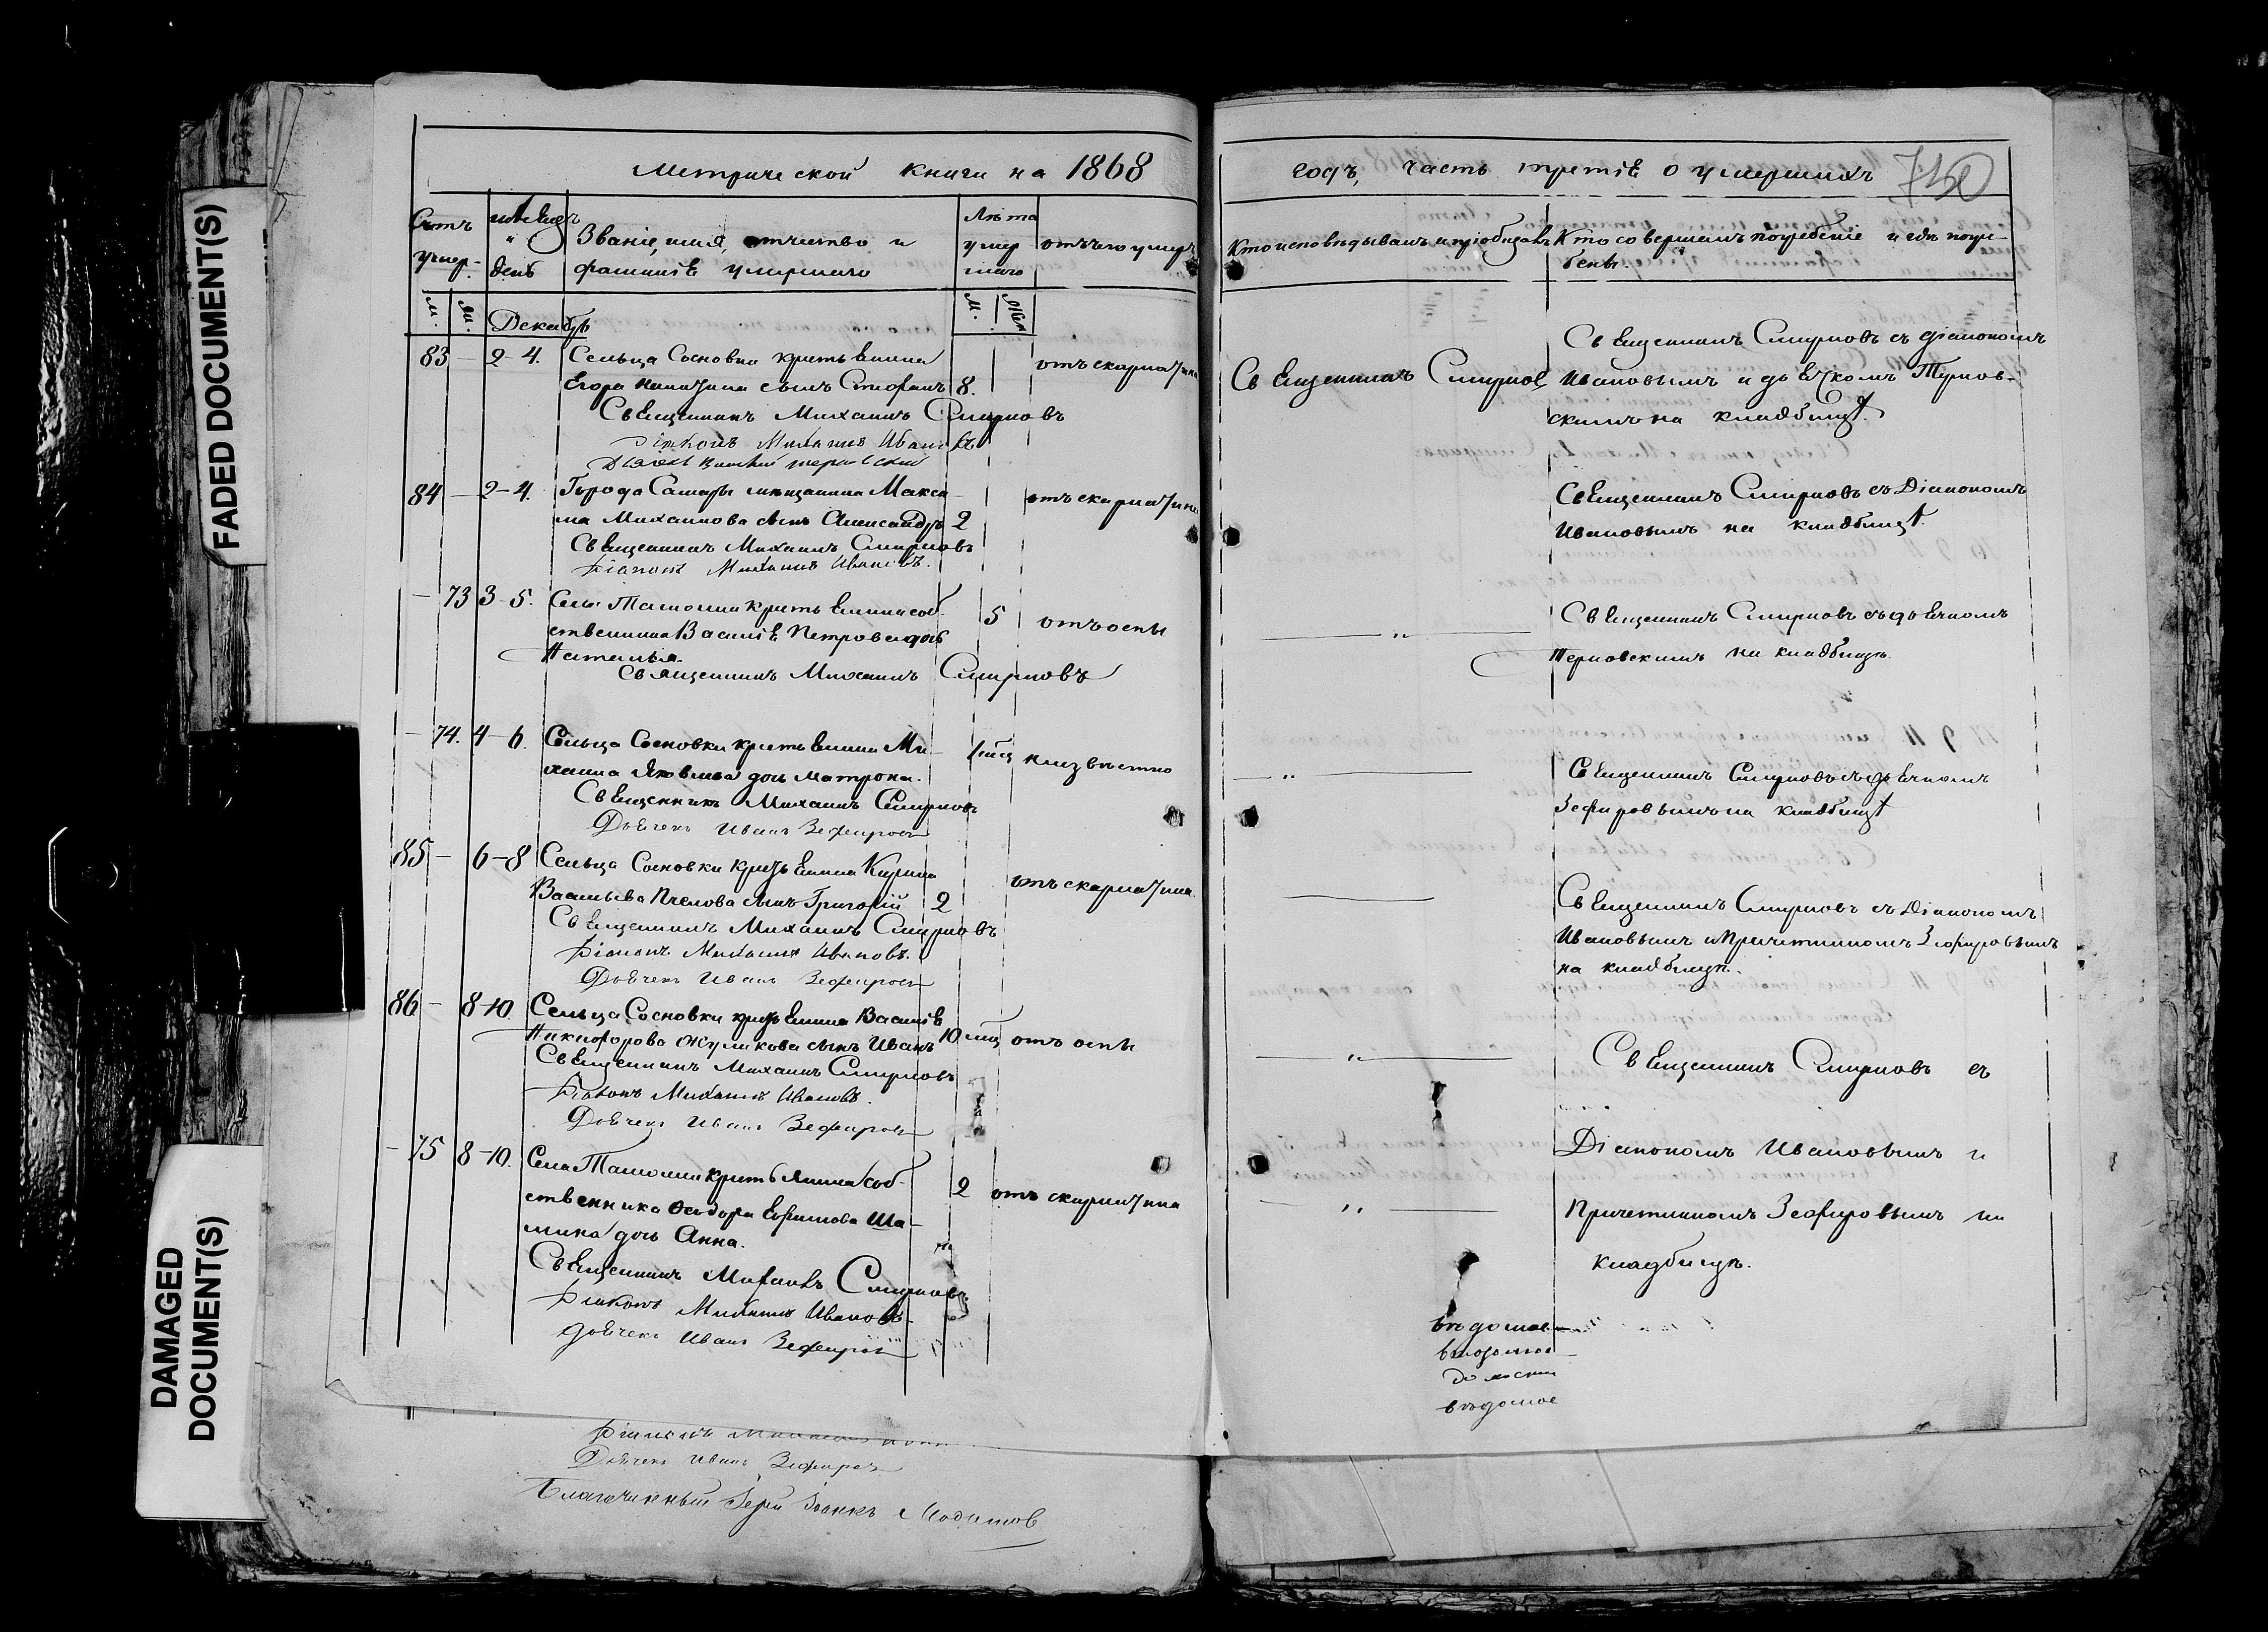 FADED DOCUMENT(S)
DAMAGED DOCUMENT(S)
Метрической книги на 1868
Счетъ умер.
день
Званіе, имя, отчество и
фамилія умершаго
Лѣта
умер
шаго
отъ чего умеръ
м.
м.
Декабрь
83 — 2-4. Сельца Сосновки крестьянина
Егора сынъ Стефанъ 8. отъ скарлатины
Священникъ Михаилъ Смирновъ
Діаконъ Михаилъ Ивановъ
84 — 2-4. Города Самары мещанина Макси
ма Михаилова сынъ Александръ 2 отъ скарлатины
Священникъ Михаилъ Смирновъ
Діаконъ Михаилъ Ивановъ.
— 73 3-5. Села крестьянина соб
ственника Василія Петрова дочь 5 отъ оспы
Наталья.
Священникъ Михаилъ Смирновъ
— 74. 4-6. Сельца Сосновки крестьянина Ми-
хаила Яковлева дочь Матрона. неизвѣстно
Священникъ Михаилъ Смирновъ
Дьячекъ Иванъ Зефировъ
85 — 6-8 Сельца Сосновки крестьянина
Васильева Пчелова сынъ Григорій 2 отъ скарлатина.
Священникъ Михаилъ Смирновъ
Діаконъ Михаилъ Ивановъ.
Дьячекъ Иванъ Зефировъ
86 — 8-10. Сельца Сосновки крестьянина Василія
Никифорова Жуликова сынъ Иванъ 10 мѣц отъ оспы
Священникъ Михаилъ Смирновъ
Діаконъ Михаилъ Ивановъ.
Дьячекъ Иванъ Зефировъ
— 75 8-10. Села крестьянина соб-
ственника Ефимова Ша- 2 отъ скарлатина
мина дочь Анна.
Священникъ Михаилъ Смирновъ
Діаконъ Михаилъ Ивановъ
Дьячекъ Иванъ Зефировъ
Дьячекъ Иванъ Зефировъ
Благочинный Іерей Іоаннъ
годъ, часть третія о умершихъ
Кто исповѣдывалъ и пріобщалъ
Кто совершалъ погребеніе и гдѣ погре-
бены.
Священникъ Смирнов
Священникъ Смирновъ съ діакономъ
Ивановымъ и дьячкомъ Тернов-
скимъ на кладбищѣ.
Священникъ Смирновъ съ Діакономъ
Ивановымъ на кладбищѣ.
— " —
Священникъ Смирновъ съ дьячкомъ
Терновскимъ на кладбищѣ.
— " —
Священникъ Смирновъ съ дьячкомъ
Зефировымъ на кладбищѣ
Священникъ Смирновъ съ Діакономъ
Ивановымъ и Причетникомъ Зефировымъ
на кладбищѣ.
— " —
Священникъ Смирновъ съ
Діакономъ Ивановымъ и
— " —
Причетникомъ Зефировымъ на
кладбищѣ.